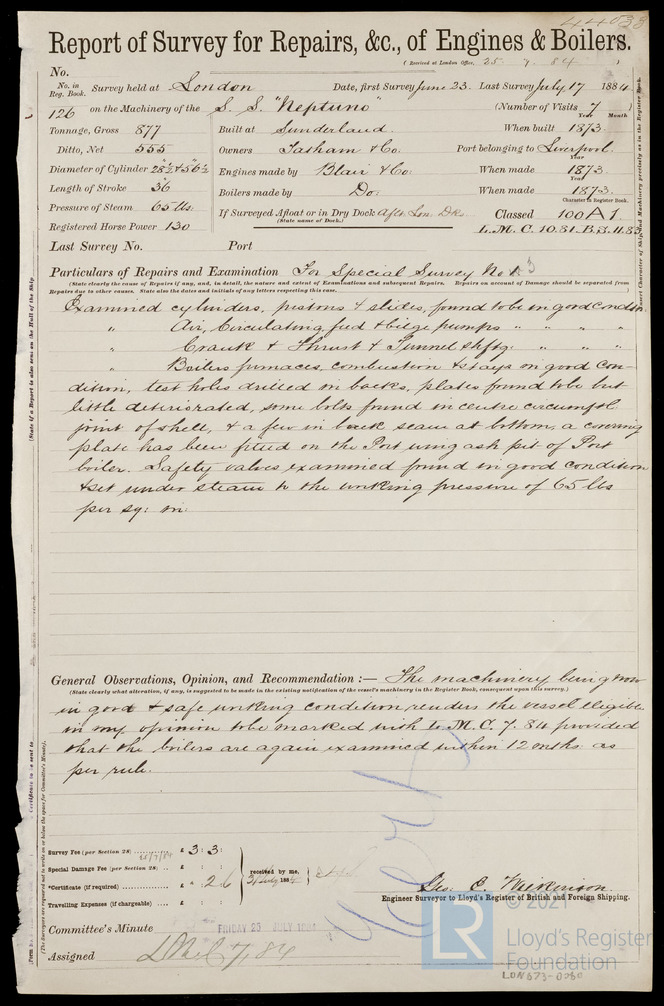 44033
Report of Survey for Repairs, &c., of Engines & Boilers.
(Received at London Office, 25 7 84 )
No.
No. in Reg. Book. Survey held at London Date, first Survey June 23. Last Survey July 17 1884
126 on the Machinery of the S. S. "Neptuno" (Number of Visits 7)
Tonnage, Gross 877 Built at Sunderland. When built Year 1873. Month
Ditto, Net 555 Owners Tatham & Co. Port belonging to Liverpool.
Diameter of Cylinder 28½ & 56½ Engines made by Blair & Co. When made Year 1873.
Length of Stroke 36 Boilers made by Do. When made Year 1873.
Pressure of Steam 65 lbs If Surveyed Afloat or in Dry Dock Aft. Lon. Dk. Classed Character in Register Book. 100 A 1.
(State name of Dock.)
Registered Horse Power 130 L. M. C. 10.81. B.S. 11.83
Last Survey No. Port
Particulars of Repairs and Examination For Special Survey No. 3
(State clearly the cause of Repairs if any, and, in detail, the nature and extent of Examinations and subsequent Repairs. Repairs on account of Damage should be separated from
Repairs due to other causes. State also the dates and initials of any letters respecting this case.)
Examined cylinders, pistons & slides, found to be in good condtn.
" Air, Circulating feed & bilge pumps " " " "
" Crank & Thrust & Tunnel shftg. " " "
" Boilers furnaces, combustion & stays in good con-
dition, test holes drilled in backs, plates found to be but
little deteriorated, some bolts found in centre circumftl.
joint of shell, & a few in back seam at bottom, a covering
plate has been fitted on the Port wing ash pit of Port
boiler. Safety valves examined found in good condition
& set under steam to the working pressure of 65 lbs
per sq: in:
General Observations, Opinion, and Recommendation :— The machinery being now
(State clearly what alteration, if any, is suggested to be made in the existing notification of the vessel's machinery in the Register Book, consequent upon this survey.)
in good & safe working condition, renders the vessel eligible
in my opinion to be marked with L. M. C. 7. 84 provided
that the boilers are again examined within 12 mths. as
per rule.
Survey Fee (per Section 28) £ 3 : 3 :
Special Damage Fee (per Section 28) £ : :
*Certificate (if required) £ " : 2 : 6
received by me, 188
Travelling Expenses (if chargeable) £ : :
Geo. C. Wilkinson.
Engineer Surveyor to Lloyd's Register of British and Foreign Shipping.
Committee's Minute FRIDAY 25 JULY 1884
Assigned LMC 7,84
© 2021
LR
Lloyd's Register
Foundation
LON673-0060
(State if a Report is also sent on the Hull of the Ship